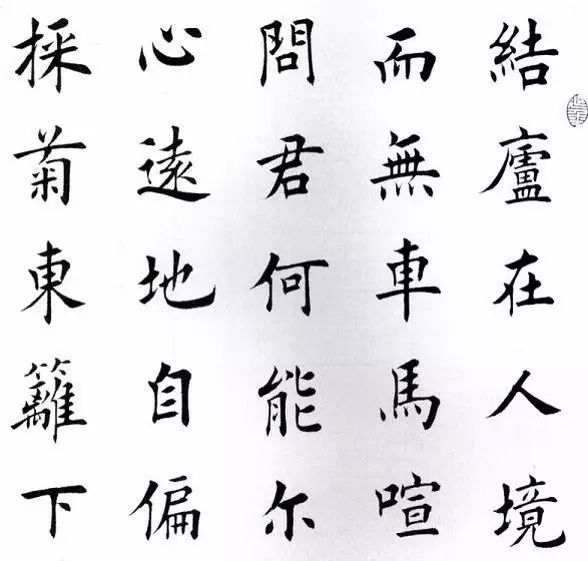 結廬在人境
而無車馬喧
問君何能尔
心遠地自偏
採菊東籬下